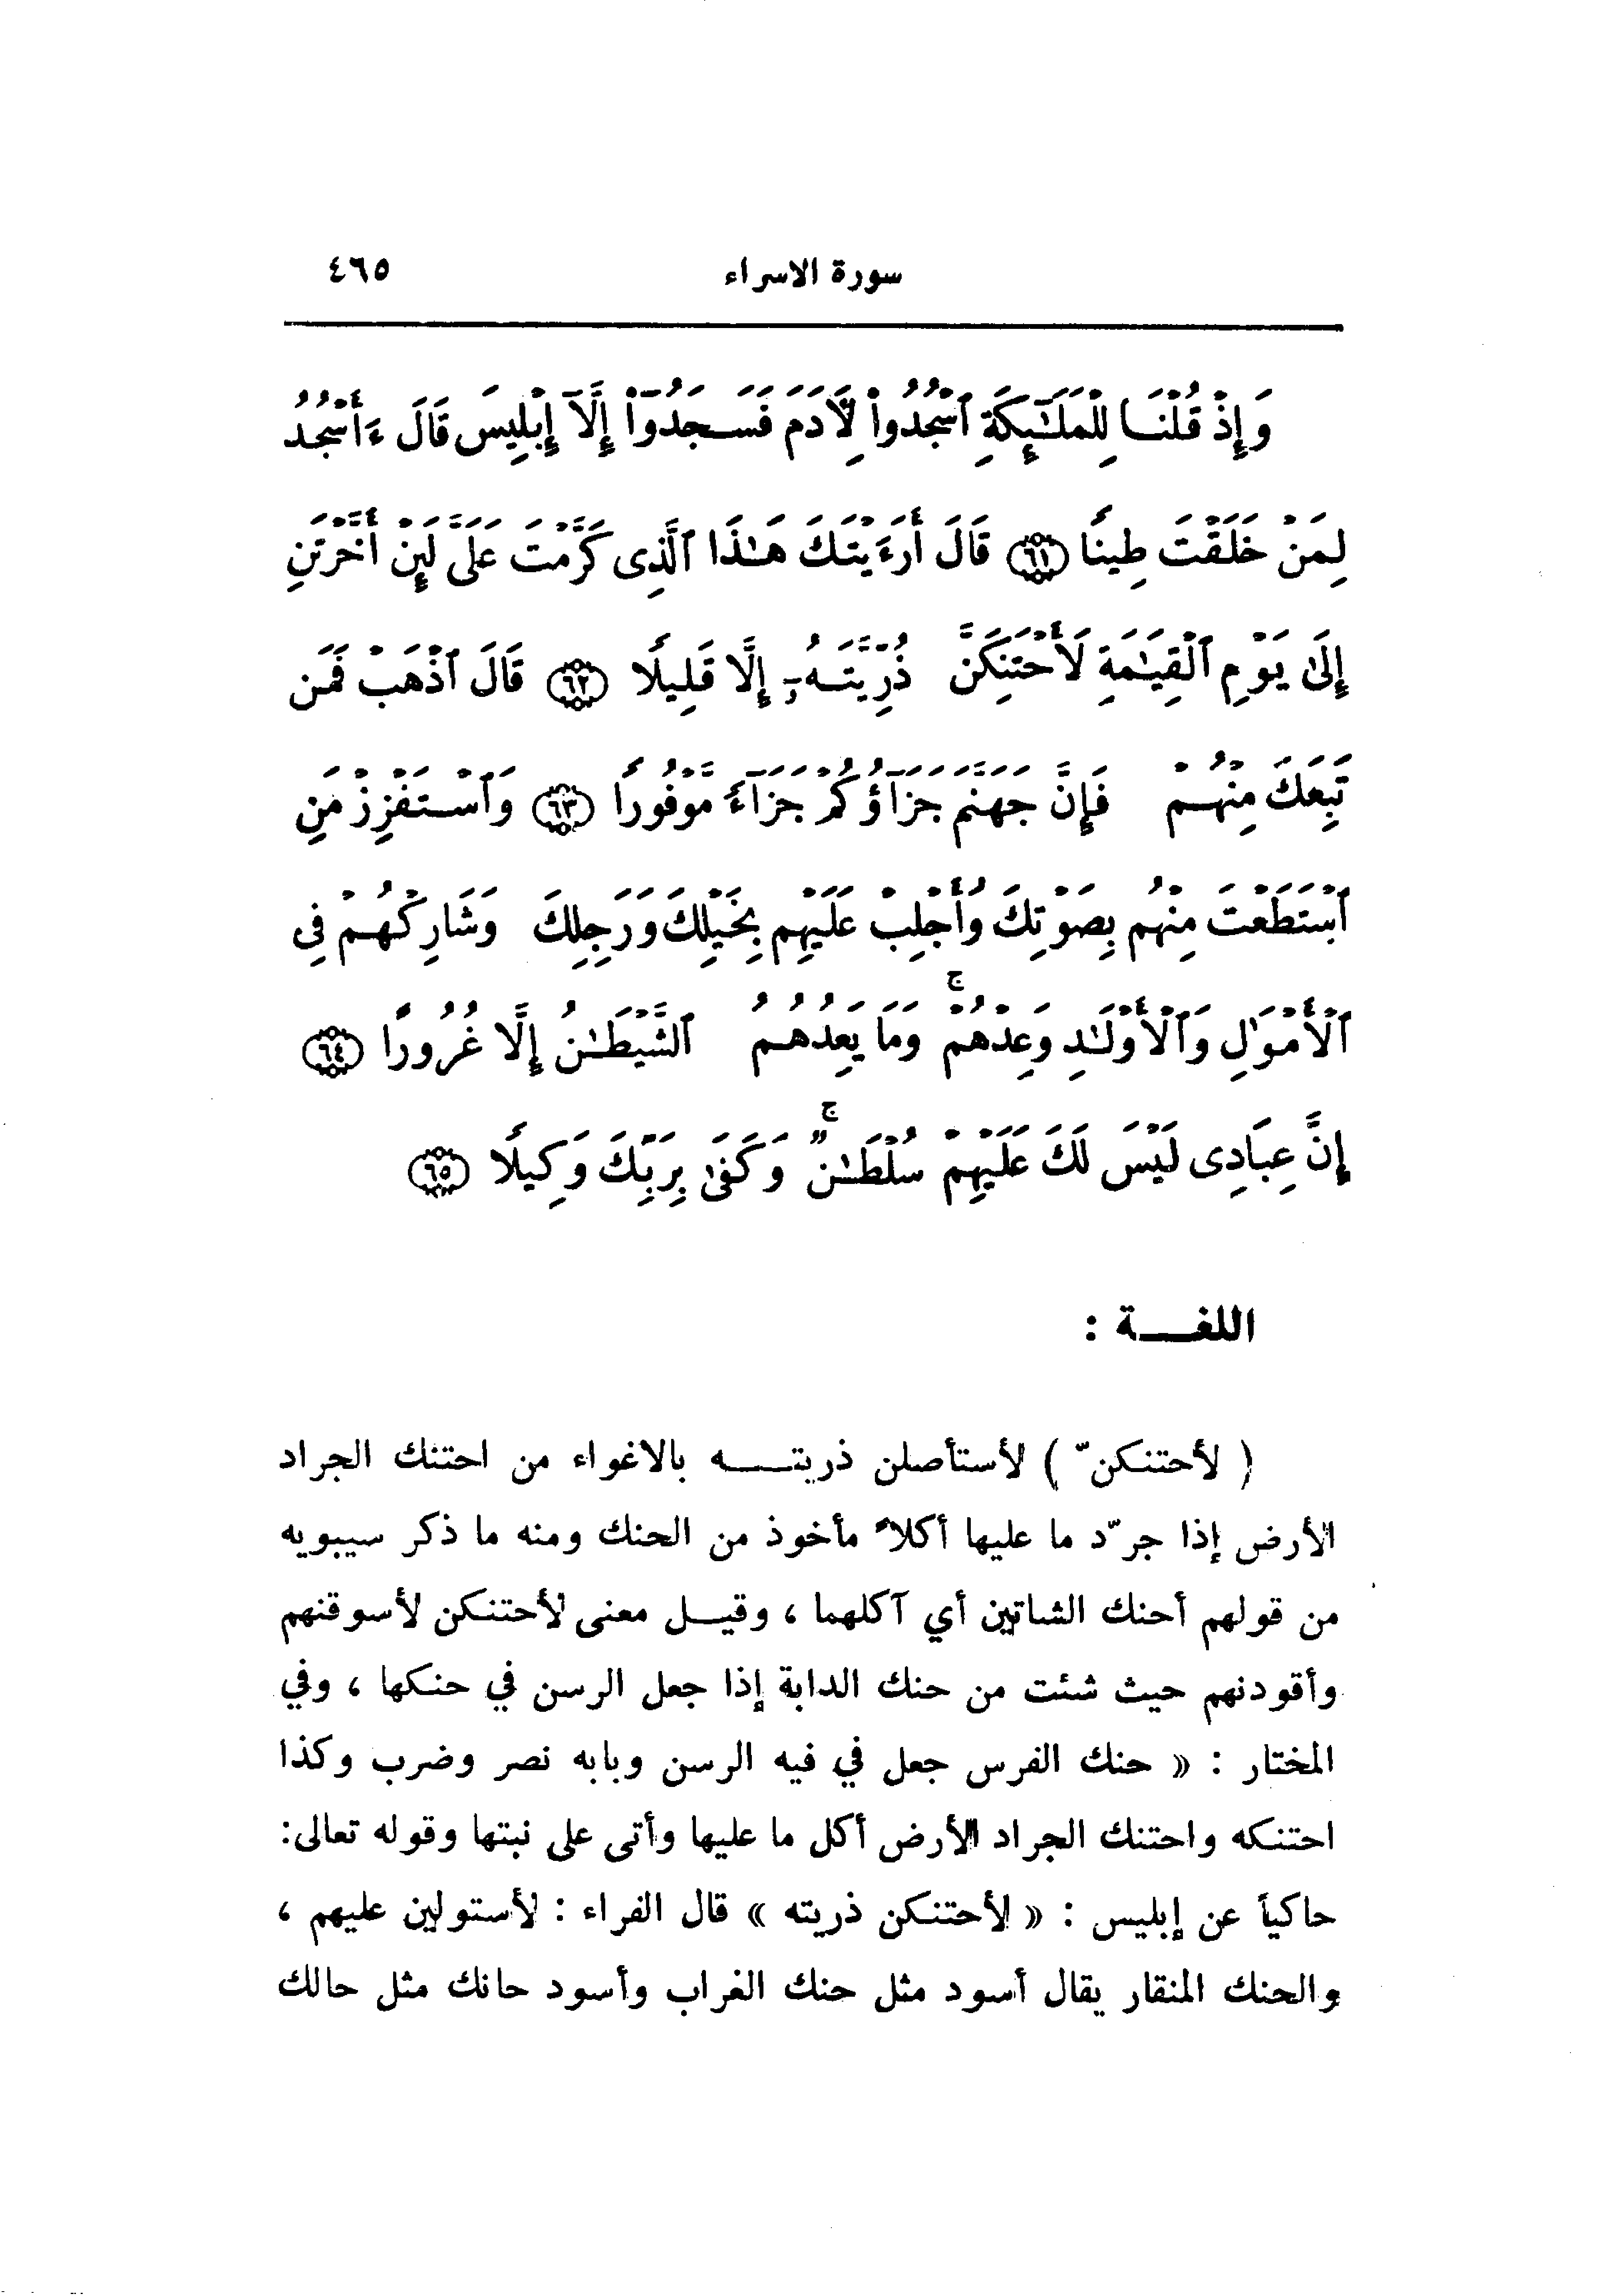 سورة الاسراء ٤٦٥
وَإِذْ قُلْنَا لِلْمَلَـٰٓئِكَةِ ٱسْجُدُوا۟ لِـَٔادَمَ فَسَجَدُوٓا۟ إِلَّآ إِبْلِيسَ قَالَ ءَأَسْجُدُ
لِمَنْ خَلَقْتَ طِينًا ٦١ قَالَ أَرَءَيْتَكَ هَـٰذَا ٱلَّذِى كَرَّمْتَ عَلَىَّ لَئِنْ أَخَّرْتَنِ
إِلَىٰ يَوْمِ ٱلْقِيَـٰمَةِ لَأَحْتَنِكَنَّ ذُرِّيَّتَهُۥٓ إِلَّا قَلِيلًا ٦٢ قَالَ ٱذْهَبْ فَمَن
تَبِعَكَ مِنْهُمْ فَإِنَّ جَهَنَّمَ جَزَآؤُكُمْ جَزَآءً مَّوْفُورًا ٦٣ وَٱسْتَفْزِزْ مَنِ
ٱسْتَطَعْتَ مِنْهُم بِصَوْتِكَ وَأَجْلِبْ عَلَيْهِم بِخَيْلِكَ وَرَجِلِكَ وَشَارِكْهُمْ فِى
ٱلْأَمْوَٰلِ وَٱلْأَوْلَـٰدِ وَعِدْهُمْ ۚ وَمَا يَعِدُهُمُ ٱلشَّيْطَـٰنُ إِلَّا غُرُورًا ٦٤
إِنَّ عِبَادِى لَيْسَ لَكَ عَلَيْهِمْ سُلْطَـٰنٌ ۚ وَكَفَىٰ بِرَبِّكَ وَكِيلًا ٦٥
اللغـــة :
( لأحتنكنّ ) لأستأصلن ذريتـــه بالاغواء من احتنك الجراد
الأرض إذا جرّد ما عليها أكلاً مأخوذ من الحنك ومنه ما ذكر سيبويه
من قولهم أحنك الشاتين أي آكلهما ، وقيــل معنى لأحتنكن لأسوقنهم
وأقودنهم حيث شئت من حنك الدابة إذا جعل الرسن في حنكها ، وفي
المختار : « حنك الفرس جعل في فيه الرسن وبابه نصر وضرب وكذا
احتنكه واحتنك الجراد الأرض أكل ما عليها وأتى على نبتها وقوله تعالى:
حاكياً عن إبليس : « لأحتنكن ذريته » قال الفراء : لأستولين عليهم ،
والحنك المنقار يقال أسود مثل حنك الغراب وأسود حانك مثل حالك